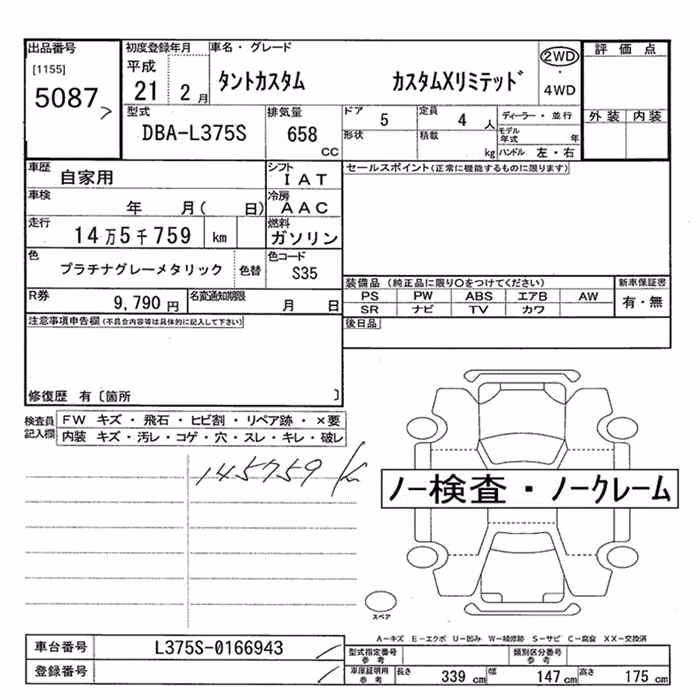 出品番号
[1155]
5087
初度登録年月
平成
21 2月
車名・グレード
タントカスタム カスタムXリミテッド
2WD
・
4WD
評価点
外装 内装
型式
DBA-L375S
排気量
658
CC
ドア 5
定員 4 人
形状
積載 kg
ディーラー・並行
モデル年式 年
ハンドル 左・右
車歴 自家用
シフト IAT
車検 年 月( 日)
冷房 AAC
走行 14万5千759 km
燃料 ガソリン
色 プラチナグレーメタリック 色替
色コード S35
R券 9,790円
名変通知期限 月 日
セールスポイント(正常に機能するものに限ります)
装備品 (純正品に限り○をつけてください)
PS PW ABS エアB AW
SR ナビ TV カワ
新車保証書
有・無
後日品
注意事項申告欄(不具合内容等は具体的に記入して下さい)
修復歴 有〔箇所 〕
検査員記入欄
FW キズ・飛石・ヒビ割・リペア跡・×要
内装 キズ・汚レ・コゲ・穴・スレ・キレ・破レ
145759 km
ノー検査・ノークレーム
スペア
A-キズ E-エクボ U-凹み W-補修跡 S-サビ C-腐食 XX-交換済
車台番号 L375S-0166943
登録番号
型式指定番号
参考
類別区分番号
参考
車庫証明用
参考
長さ 339 cm 幅 147 cm 高さ 175 cm